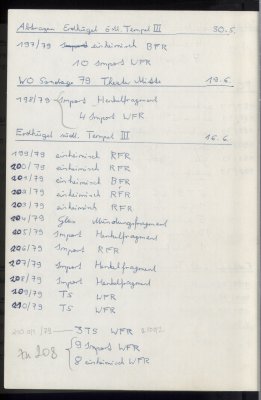 Abtragen Erdhügel südl. Tempel III 30.5.
197/79 einheimisch BFR
10 Import WFR
WO Sondage 79 Theater Mitte 19.6.
198/79 Import Henkelfragment
4 Import WFR
Erdhügel südl. Tempel III 16.6.
199/79 einheimisch RFR
200/79 einheimisch RFR
201/79 einheimisch BFR
202/79 einheimisch RFR
203/79 einheimisch RFR
204/79 Glas Mündungsfragment
205/79 Import Henkelfragment
206/79 Import RFR
207/79 Import Henkelfragment
208/79 Import Henkelfragment
209/79 TS WFR
210/79 TS WFR
3 TS WFR
Zu 208
9 Import WFR
8 einheimisch WFR